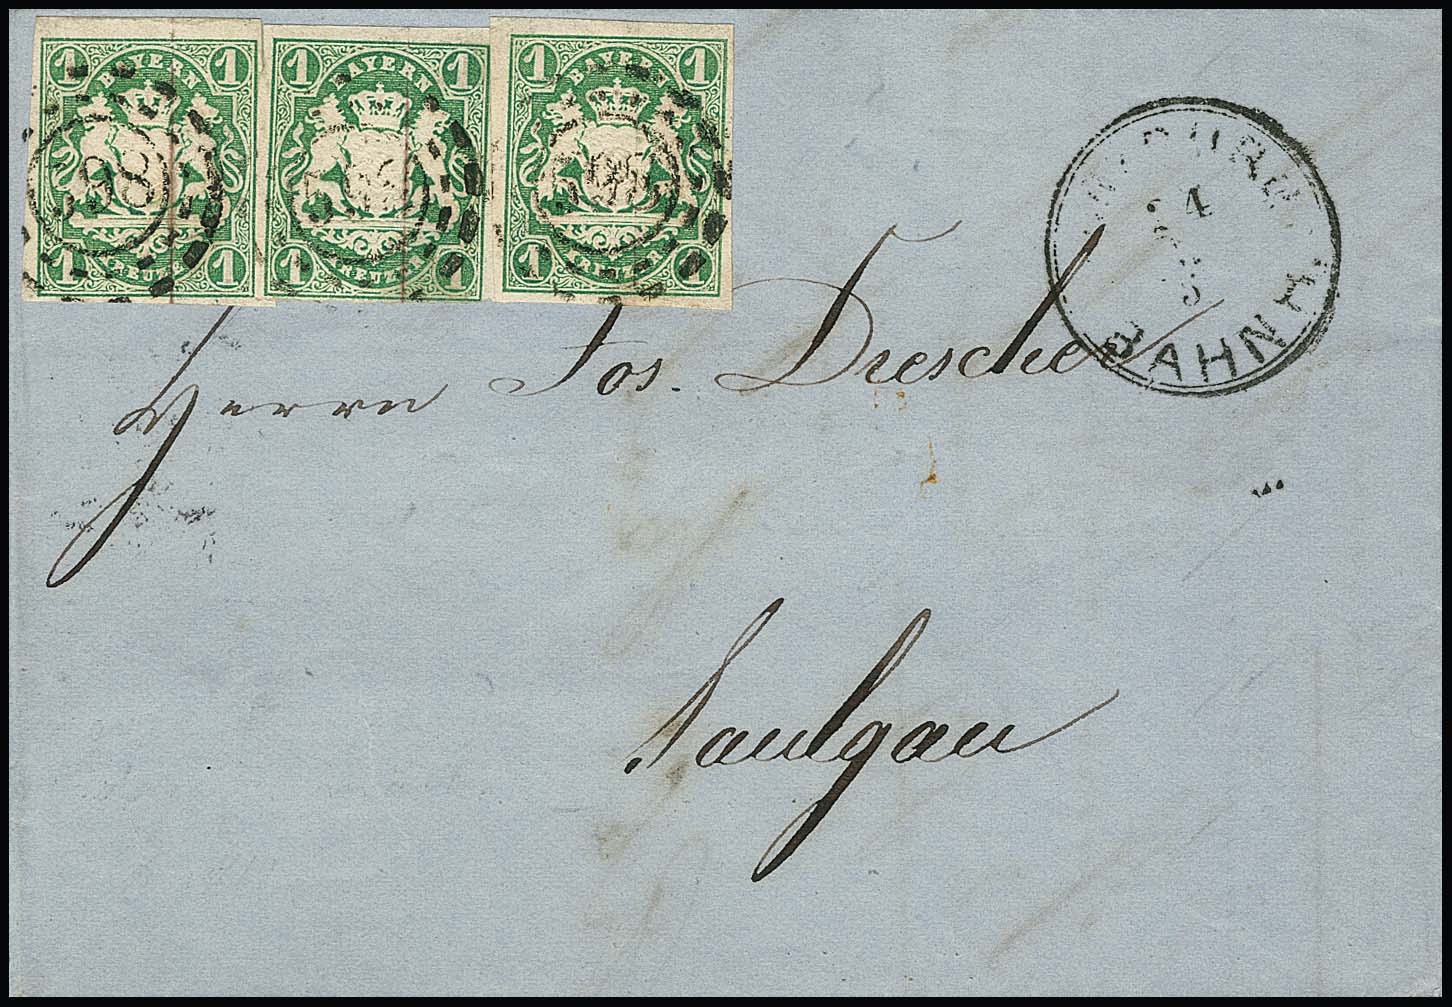 1 1
BAYERN
1 KREUZER 1
1 1
BAYERN
1 KREUZER 1
1 1
BAYERN
1 KREUZER 1
598
24
BAHNH.
Herrn Jos. Drescher
Saulgau